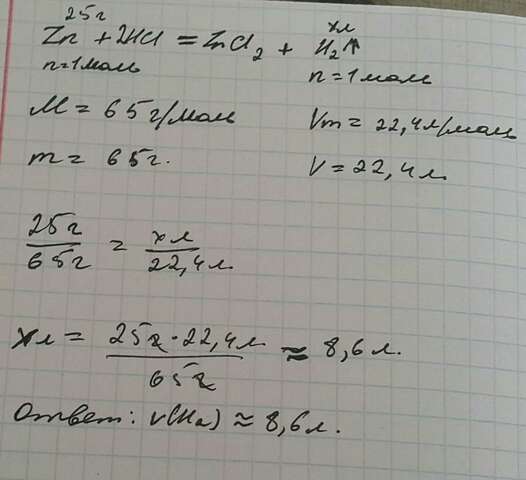 25г хл
Zn + 2HCl = ZnCl₂ + H₂↑
n=1моль n=1моль
M = 65г/моль Vm = 22,4л/моль
m = 65г. V = 22,4л.
25г/65г = хл/22,4л.
хл = 25г·22,4л/65г ≈ 8,6л.
Ответ: V(H₂) ≈ 8,6л.